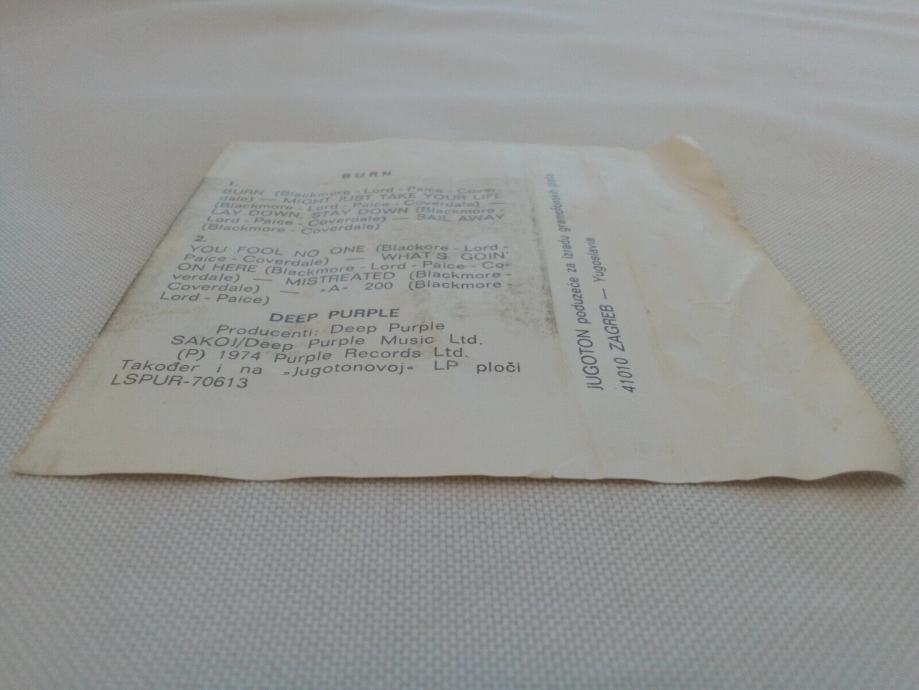 BURN
1.
BURN (Blackmore - Lord - Paice - Cover-
dale) — MIGHT JUST TAKE YOUR LIFE
(Blackmore - Lord - Paice - Coverdale) —
LAY DOWN, STAY DOWN (Blackmore -
Lord - Paice - Coverdale) — SAIL AWAY
(Blackmore - Coverdale)
2.
YOU FOOL NO ONE (Blackore - Lord -
Paice - Coverdale) — WHAT'S GOIN'
ON HERE (Blackmore - Lord - Paice - Co-
verdale) — MISTREATED (Blackmore -
Coverdale) — »A« 200 (Blackmore -
Lord - Paice)
DEEP PURPLE
Producenti: Deep Purple
SAKOJ/Deep Purple Music Ltd.
(P) 1974 Purple Records Ltd.
Također i na »Jugotonovoj« LP ploči
LSPUR-70613
JUGOTON poduzeće za izradu gramofonskih ploča
41010 ZAGREB — Yugoslavia